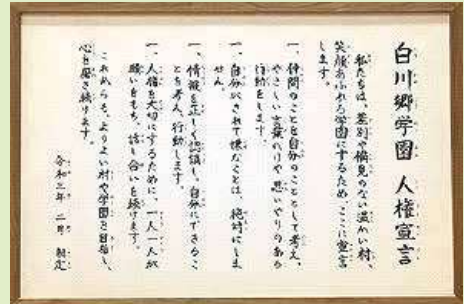 白川郷学園 人権宣言
私たちは、差別や偏見のない温かい村、
笑顔あふれる学園にするため、ここに宣言
します。
一、仲間のことを自分のこととして考え、
やさしい言葉のりや思いやりのある
行動をします。
一、自分がされて嫌なことは、絶対にしま
せん。
一、情報を正しく認識し、自分にできるこ
とを考え、行動します。
一、人権を大切にするために、一人一人が
願いをもち、話し合いを続けます。
これからも、よりよい村や学園を目指し、
心を磨き続けます。
令和三年 二月 制定